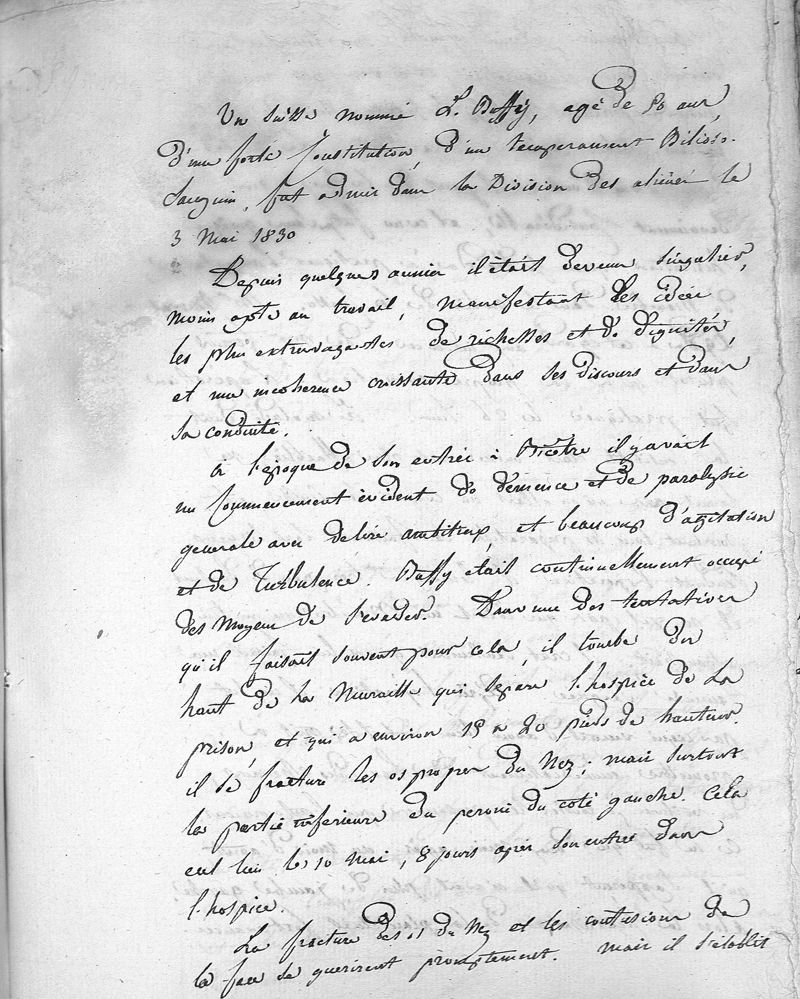 Un suisse nommé L. Baffy, agé de 50 ans,
d'une forte Constitution, d'un temperament Bilioso-
Sanguin, fut admis dans la Division des aliénés le
3 Mai 1830
Depuis quelques années il était devenu singulier,
moins apte au travail, manifestant des idées
les plus extravagantes de richesses et de dignités,
et une incoherence croissante dans ses discours et dans
sa conduite.
a l'époque de son entrée à Bicêtre il y avait
un Commencement évident de démence et de paralysie
generale avec delire ambitieux, et beaucoup d'agitation
et de Turbulence. Baffy était continuellement occupé
des Moyens de s'evader. Dans une des tentatives
qu'il faisait souvent pour cela, il tombe du
haut de la Muraille qui separe l'hospice de la
prison, et qui a environ 15 a 20 pieds de hauteur.
il se fracture les os propres du Nez; mais surtout
la partie inferieure du peroné du coté gauche. Cela
eut lieu le 10 Mai, 8 jours après son entrée dans
l'hospice.
La fracture des os du Nez et les contusions de
la face se guerirent promptement. mais il s'établit